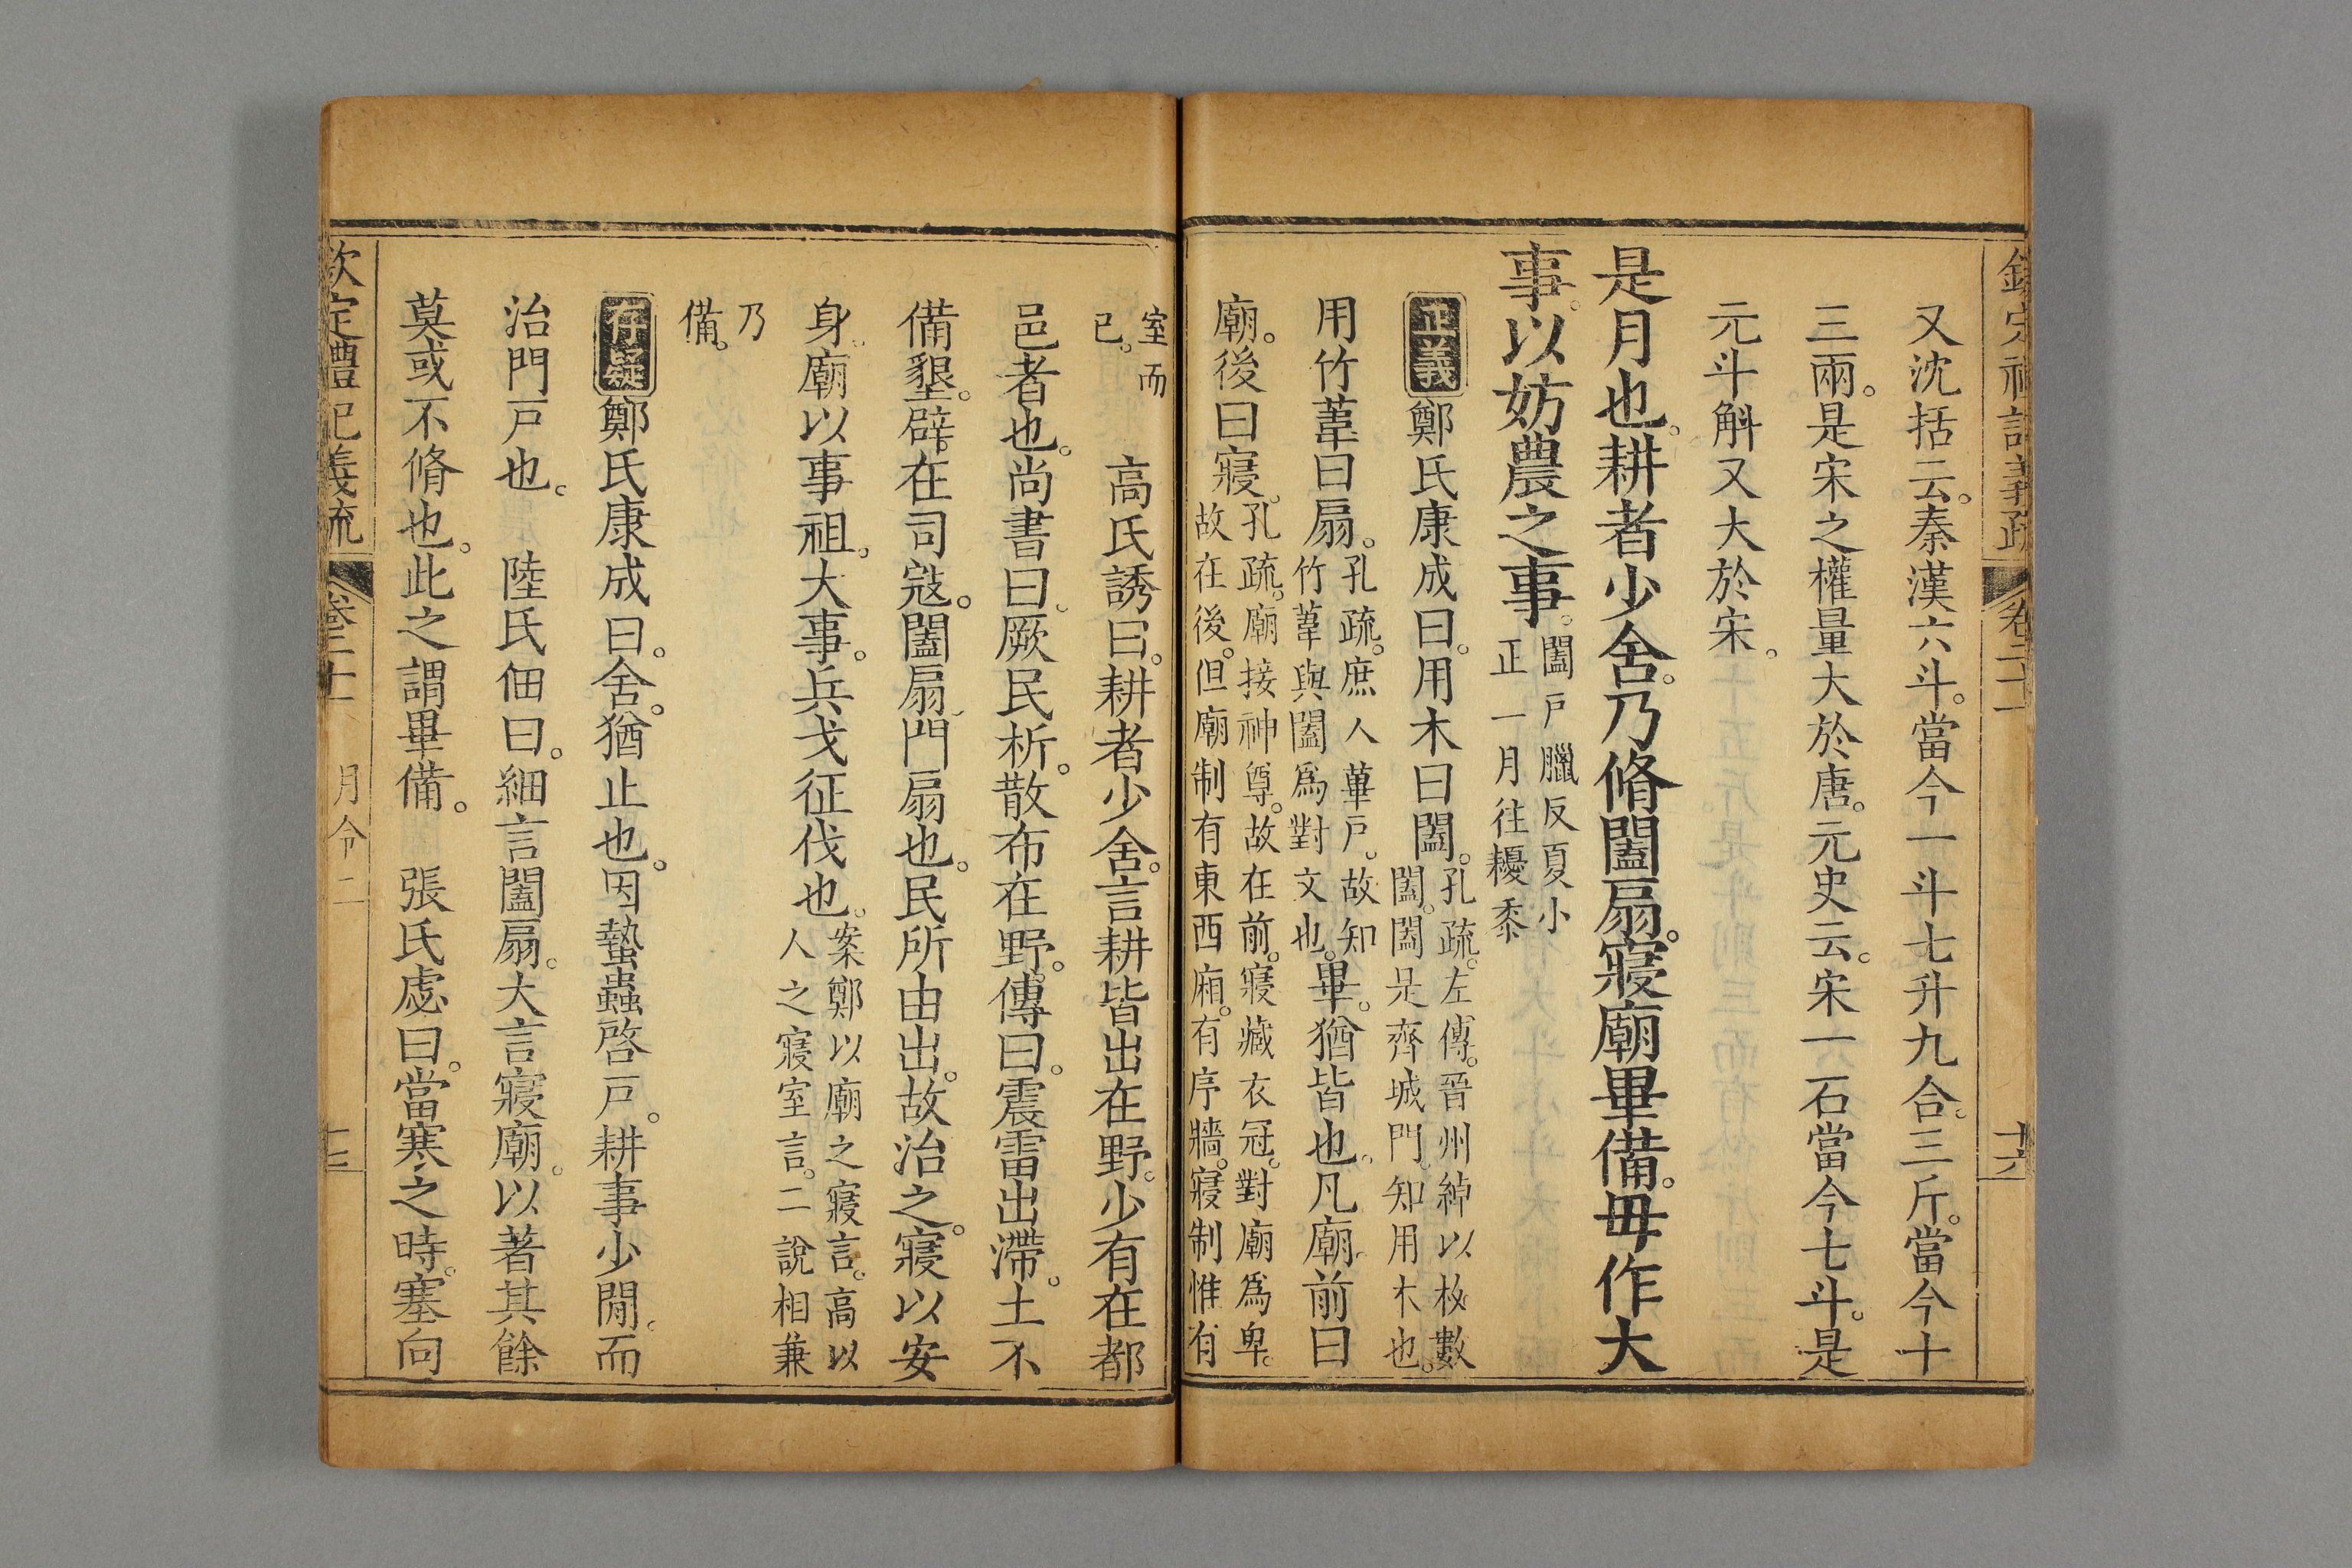 欽定禮記義疏 卷二十一 十六
又沈括云。秦漢六斗。當今一斗七升九合。三斤。當今十
三兩。是宋之權量大於唐。元史云。宋一石當今七斗。是
元斗斛又大於宋。
是月也。耕者少舍。乃脩闔扇。寢廟畢備。毋作大
事。以妨農之事。闔戶臘反夏小
正一月往耰黍
正義鄭氏康成曰。用木曰闔。孔疏。左傳。晉州綽以枚數
闔。闔是齊城門。知用木也。
用竹葦曰扇。孔疏。庶人蓽戶。故知
竹葦與闔爲對文也。畢。猶皆也。凡廟。前曰
廟。後曰寢。孔疏。廟接神尊。故在前。寢藏衣冠。對廟爲卑。
故在後。但廟制有東西廂。有序牆。寢制惟有
室而
已。高氏誘曰。耕者少舍。言耕皆出在野。少有在都
邑者也。尚書曰。厥民析。散布在野。傳曰。震雷出滯。土不
備墾。辟在司寇。闔扇。門扇也。民所由出。故治之。寢以安
身。廟以事祖。大事。兵戈征伐也。案鄭以廟之寢言。高以
人之寢室言。二說相兼
乃
備。
存疑鄭氏康成曰。舍。猶止也。因蟄蟲啓戶。耕事少閒。而
治門戶也。 陸氏佃曰。細言闔扇。大言寢廟。以著其餘
莫或不脩也。此之謂畢備。 張氏處曰。當寒之時。塞向
欽定禮記義疏 卷二十一 月令二